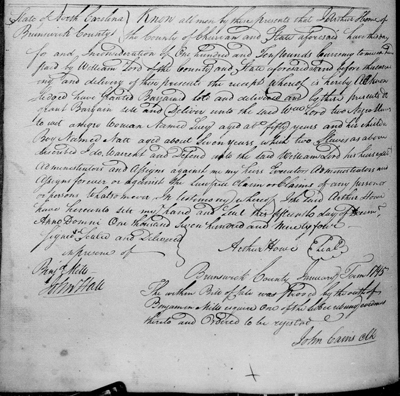 State of North Carolina } Know all men by these presents that I Arthur Howe of
Brunswick County } the County of Brunswick and State aforesaid have there
for and in consideration of One hundred and Ten Pounds Currency to me in hand
paid by William Lord of the County and State aforesaid and before the
and delivery of these presents the receipt whereof is hereby
have granted Bargained Sold and delivered and by these presents do
Grant Bargain Sell and Deliver unto the said Wm Lord two
to wit a Negro Woman Named Lucy aged at Fifty Years and his
Boy Named Natt aged about Seven Years, which two Slaves as above
described I do Warrant and Defend unto the said William Lord his heirs
Administrators and Assigns against me my Heirs Executors Administrators and
Assigns forever or against the lawful Claim or Claims of any person
or persons Whatsoever. In testimony whereof I the said Arthur Howe
have hereunto set my hand and Seal this fifteenth day of
Anno Domini One thousand Seven hundred and Ninety four
Signed Sealed and Delivered
in presence of
Arthur Howe (Seal)
Benj. Mills
John Hall
Brunswick County January Term 1795
The within Bill of Sale was proved by the oath of
Benjamin Mills esquire One of the
thereto and Ordered to be registered
John Cains Clk